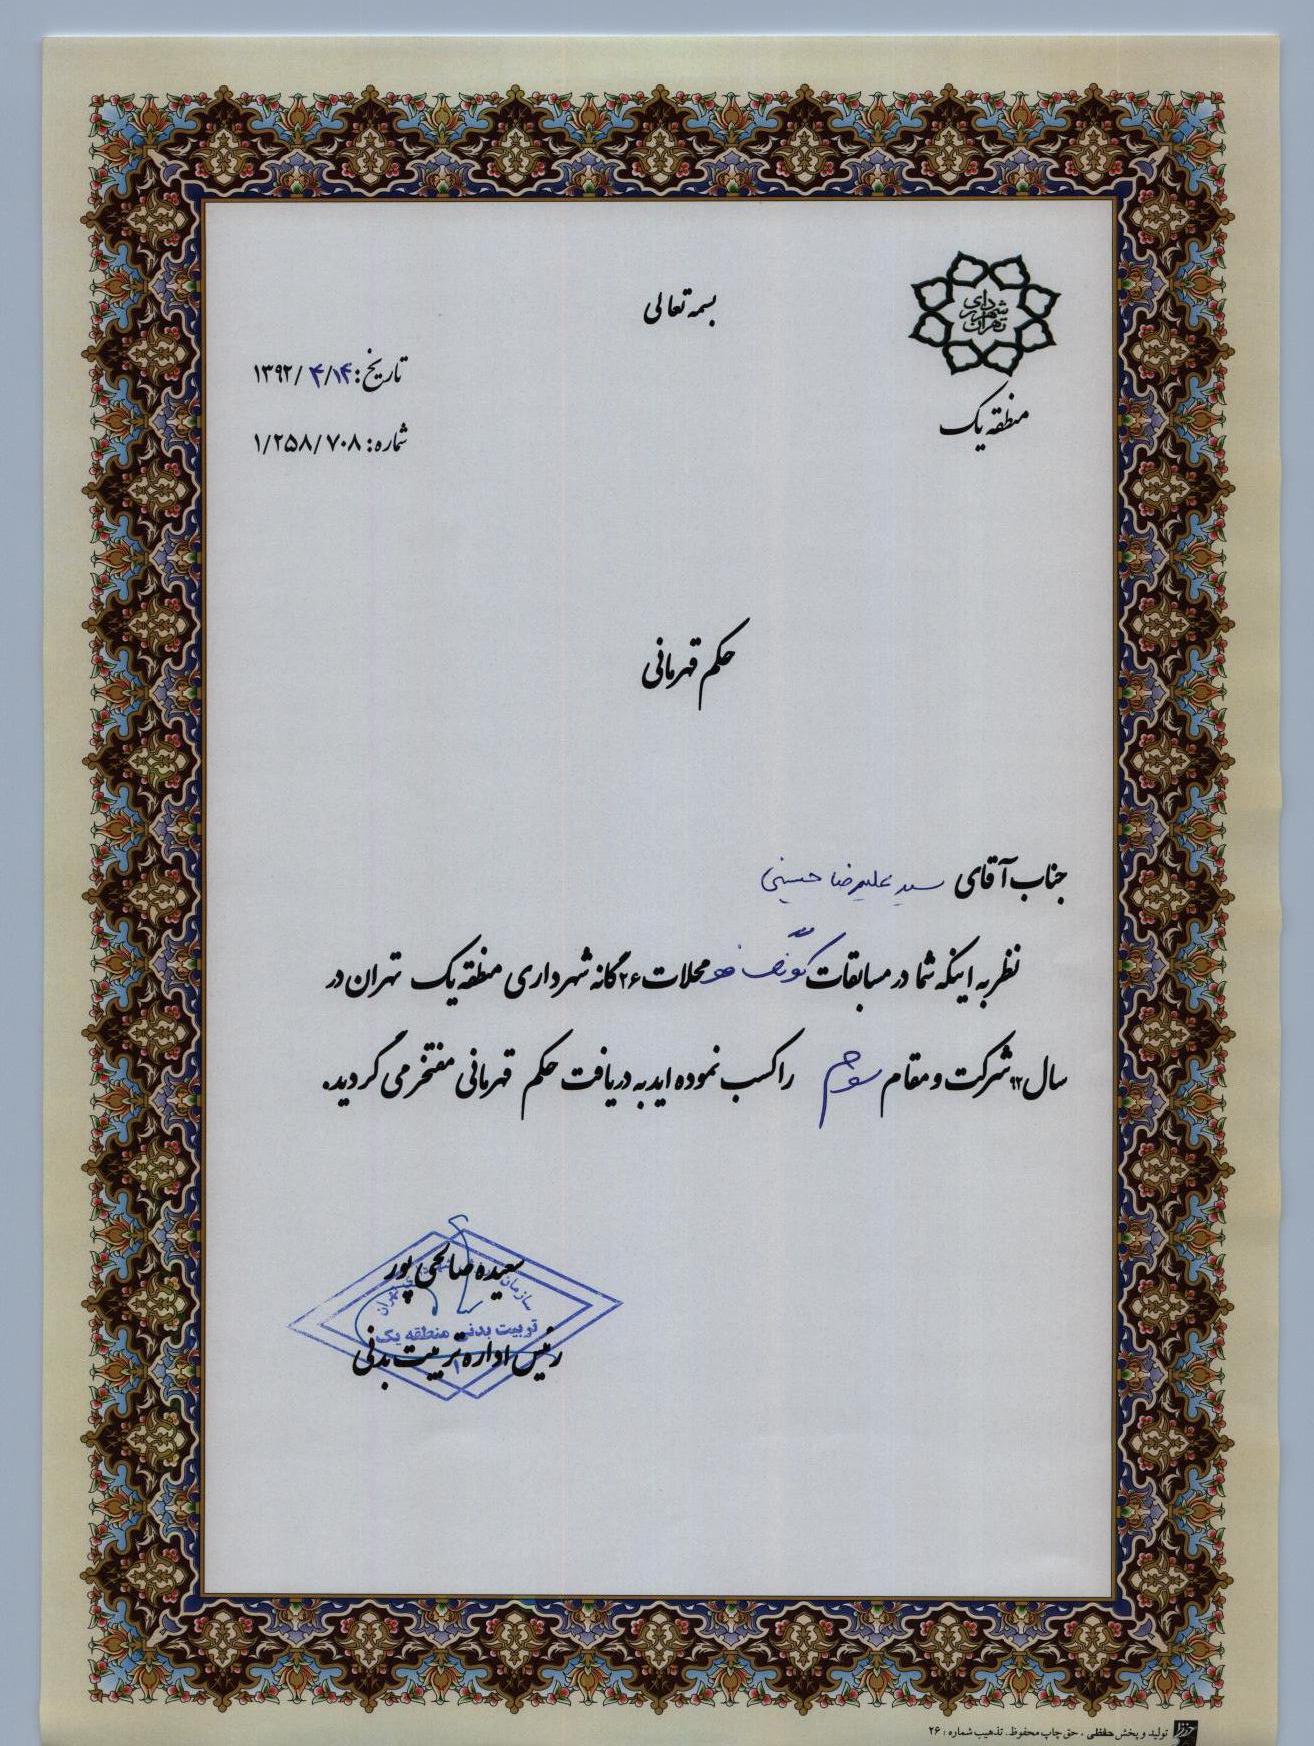 بسمه تعالی
شهرداری تهران
منطقه یک
تاریخ: ۱۳۹۲/۴/۱۴
شماره: ۱/۲۵۸/۷۰۸
حکم قهرمانی
جناب آقای سید علیرضا حسینی
نظر به اینکه شما در مسابقات کونگ فو محلات ۲۶ گانه شهرداری منطقه یک تهران در
سال ۹۲ شرکت و مقام سوم را کسب نموده اید به دریافت حکم قهرمانی مفتخر می گردید.
سعیده صالحی پور
سازمان تهران
تربیت بدنی منطقه یک
رئیس اداره تربیت بدنی
تولید و پخش حفظی . حق چاپ محفوظ . تذهیب شماره : ۲۶